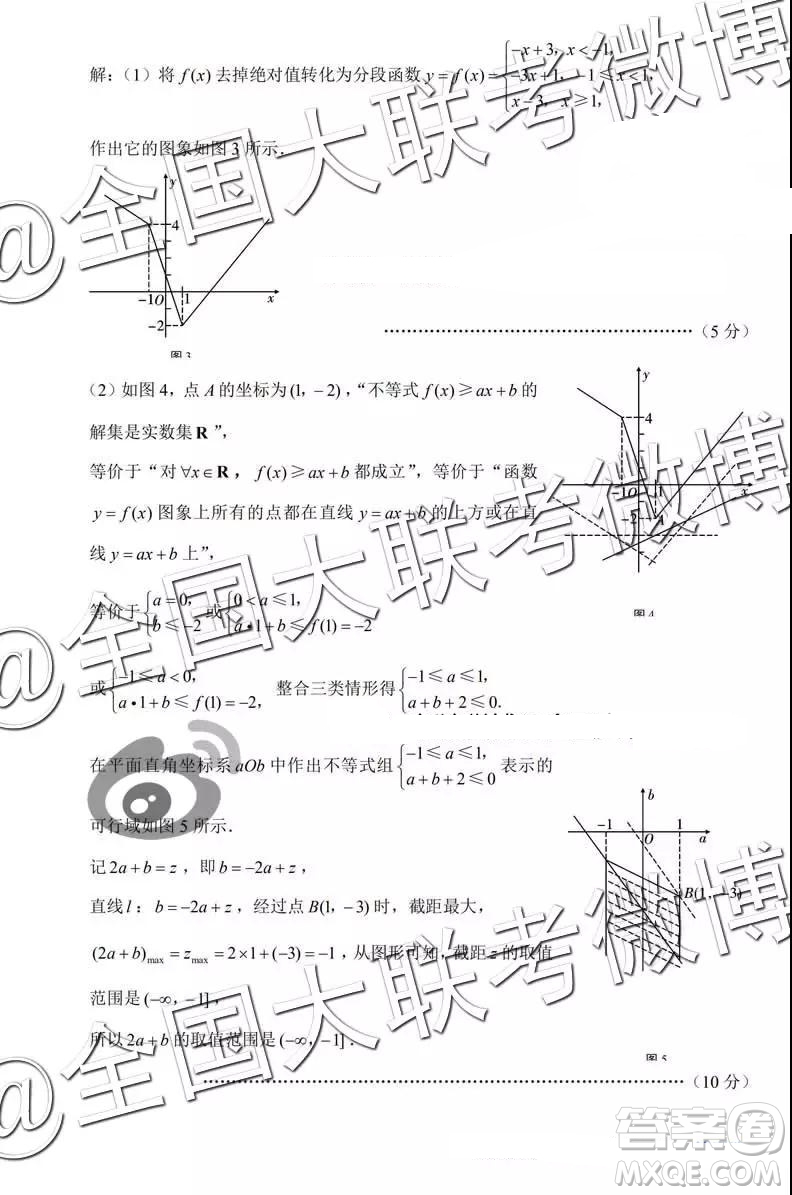 解：（1）将 f(x) 去掉绝对值转化为分段函数 y = f(x) = { -x+3, x < -1, -3x+1, -1 ≤ x < 1, x-3, x ≥ 1,
作出它的图象如图 3 所示．
y
4
-1 O 1 x
-2
图 3
……（5 分）
（2）如图 4，点 A 的坐标为 (1, -2)，“不等式 f(x) ≥ ax + b 的
解集是实数集 R ”，
等价于“对 ∀x ∈ R， f(x) ≥ ax + b 都成立”，等价于“函数
y = f(x) 图象上所有的点都在直线 y = ax + b 的上方或在直
线 y = ax + b 上”，
y
4
-1 O 1 x
-2
图 4
等价于 { a = 0, b ≤ -2 或 { 0 < a ≤ 1, a•1+b ≤ f(1) = -2
或 { -1 ≤ a < 0, a•1+b ≤ f(1) = -2, 整合三类情形得 { -1 ≤ a ≤ 1, a+b+2 ≤ 0.
在平面直角坐标系 aOb 中作出不等式组 { -1 ≤ a ≤ 1, a+b+2 ≤ 0 表示的
可行域如图 5 所示．
记 2a + b = z ，即 b = -2a + z ，
直线 l ： b = -2a + z ，经过点 B(1, -3) 时，截距最大，
(2a + b)max = zmax = 2×1+(-3) = -1 ，从图形可知，截距 z 的取值
范围是 (-∞, -1]，
所以 2a + b 的取值范围是 (-∞, -1] ．
b
-1 O 1 a
B(1, -3)
图 5
……（10 分）
@全国大联考微博
@全国大联考微博
@全国大联考微博
答案卷
MXQE.COM